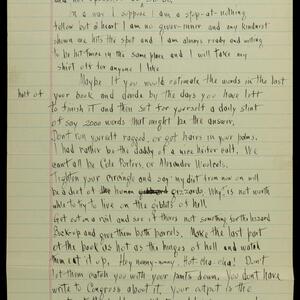 In a way I suppose I am a stop-at-nothing
fellow but at heart I am no giver-inner and any kindness
shown me hits the spot and I am always ready and willing
to be hit twice in the same place and I will take my
shirt off for anyone I like
Maybe if you would estimate the words in the last
half of
your book and divide by the days you have left
to finish it and then set for yourself a daily stint
of say 2000 words that might be the answer.
Don't run yourself ragged, or get hairs in your palms.
I had rather be the daddy of a nice heifer calf. We
can't all be Cole Porters, or Alexander Woollcotts.
Tighten your circingle and say my diet from now on will
be a diet of the human gizzards. Why is not worth
while to try to live on the giblets of hell
Get out on a rail and see if there's not something for the buzzard
Back-up and give them both barrels. Make the last part
of the book as hot as the hinges of hell and watch
them eat it up. Hey nonny-nonny. Hot cha-cha! Don't
let them catch you with your pants down. You don't have
to write to Congress about it. Your output is the